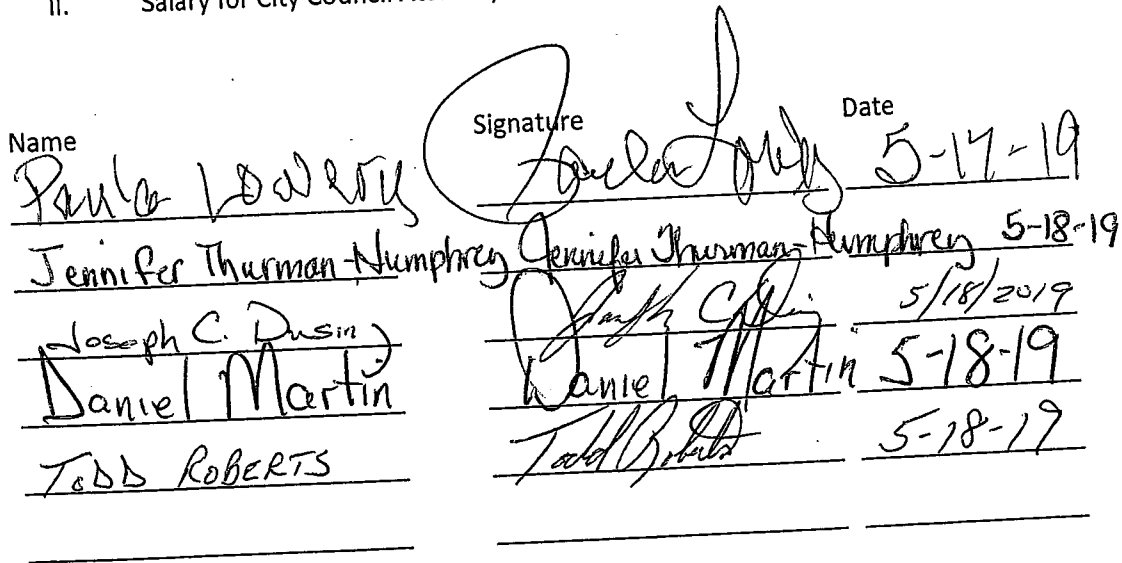 II. Salary for City Council
Name Signature Date
Paula Lowery Paula Lowery 5-17-19
Jennifer Thurman-Humphrey Jennifer Thurman-Humphrey 5-18-19
Joseph C. Dusin 5/18/2019
Daniel Martin Daniel Martin 5-18-19
TODD ROBERTS Todd Roberts 5-18-19